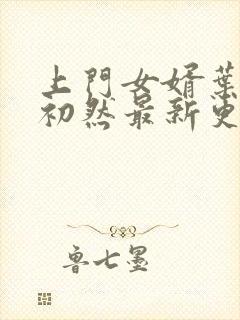 上門女婿葉
初然最新更
魯七墨